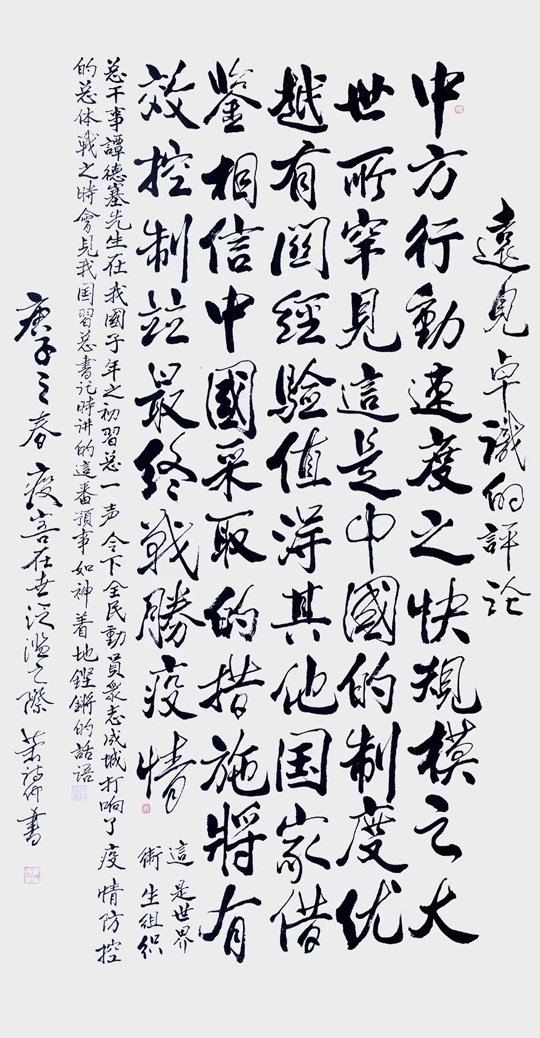 遠見卓識的評论
中方行動速度之快規模之大
世所罕見這是中國的制度优
越有関經驗值得其他国家借
鉴相信中國采取的措施將有
效控制並最终戰勝疫情
這是世界
衛生組织
总干事譚德塞先生在我國子年之初習总一声令下全民動員衆志成城打响了疫情防控
的总体戰之時會見我国習总書记時讲的這番預事如神着地鏗鏘的話语
庚子之春疫害在世泛滥之際
書